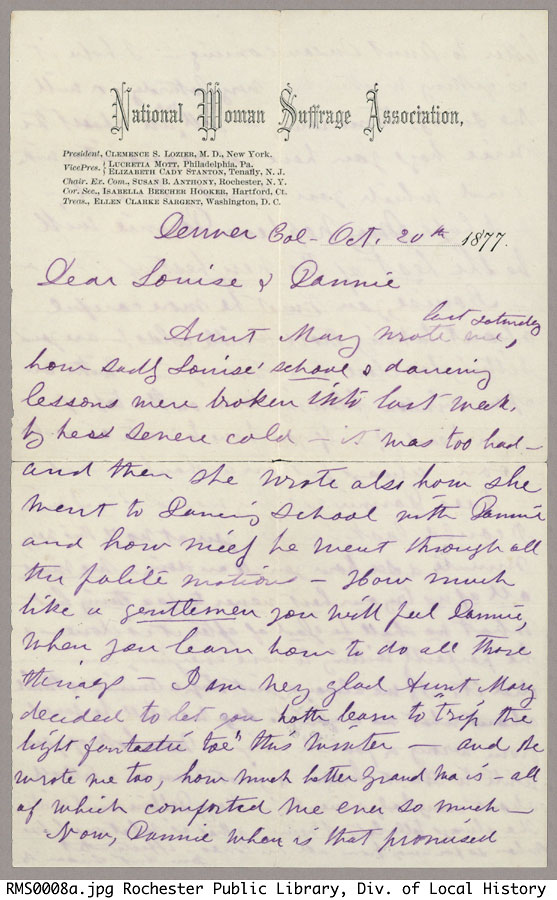 National Woman Suffrage Association,
President, CLEMENCE S. LOZIER, M. D., New York.
VicePres. { LUCRETIA MOTT, Philadelphia, Pa.
ELIZABETH CADY STANTON, Tenafly, N. J.
Chair. Ex. Com., SUSAN B. ANTHONY, Rochester, N. Y.
Cor. Sec., ISABELLA BEECHER HOOKER, Hartford, Ct.
Treas., ELLEN CLARKE SARGENT, Washington, D. C.
Denver Col - Oct. 20th 1877.
Dear Louise & Dannie
last saturday
Aunt Mary wrote me,
how sadly Louise' school & dancing
lessons were broken into last week,
by her severe cold - it was too bad -
and then she wrote also how she
went to Dancing School with Dannie
and how nicely he went through all
the polite motions - How much
like a gentlemen you will feel Dannie,
when you learn how to do all those
things - I am very glad Aunt Mary
decided to let you both learn to "trip the
light fantastic toe" this winter - and she
wrote me too, how much better Grand Ma is - all
of which comforted me ever so much -
Now, Dannie when is that promised
RMS0008a.jpg Rochester Public Library, Div. of Local History